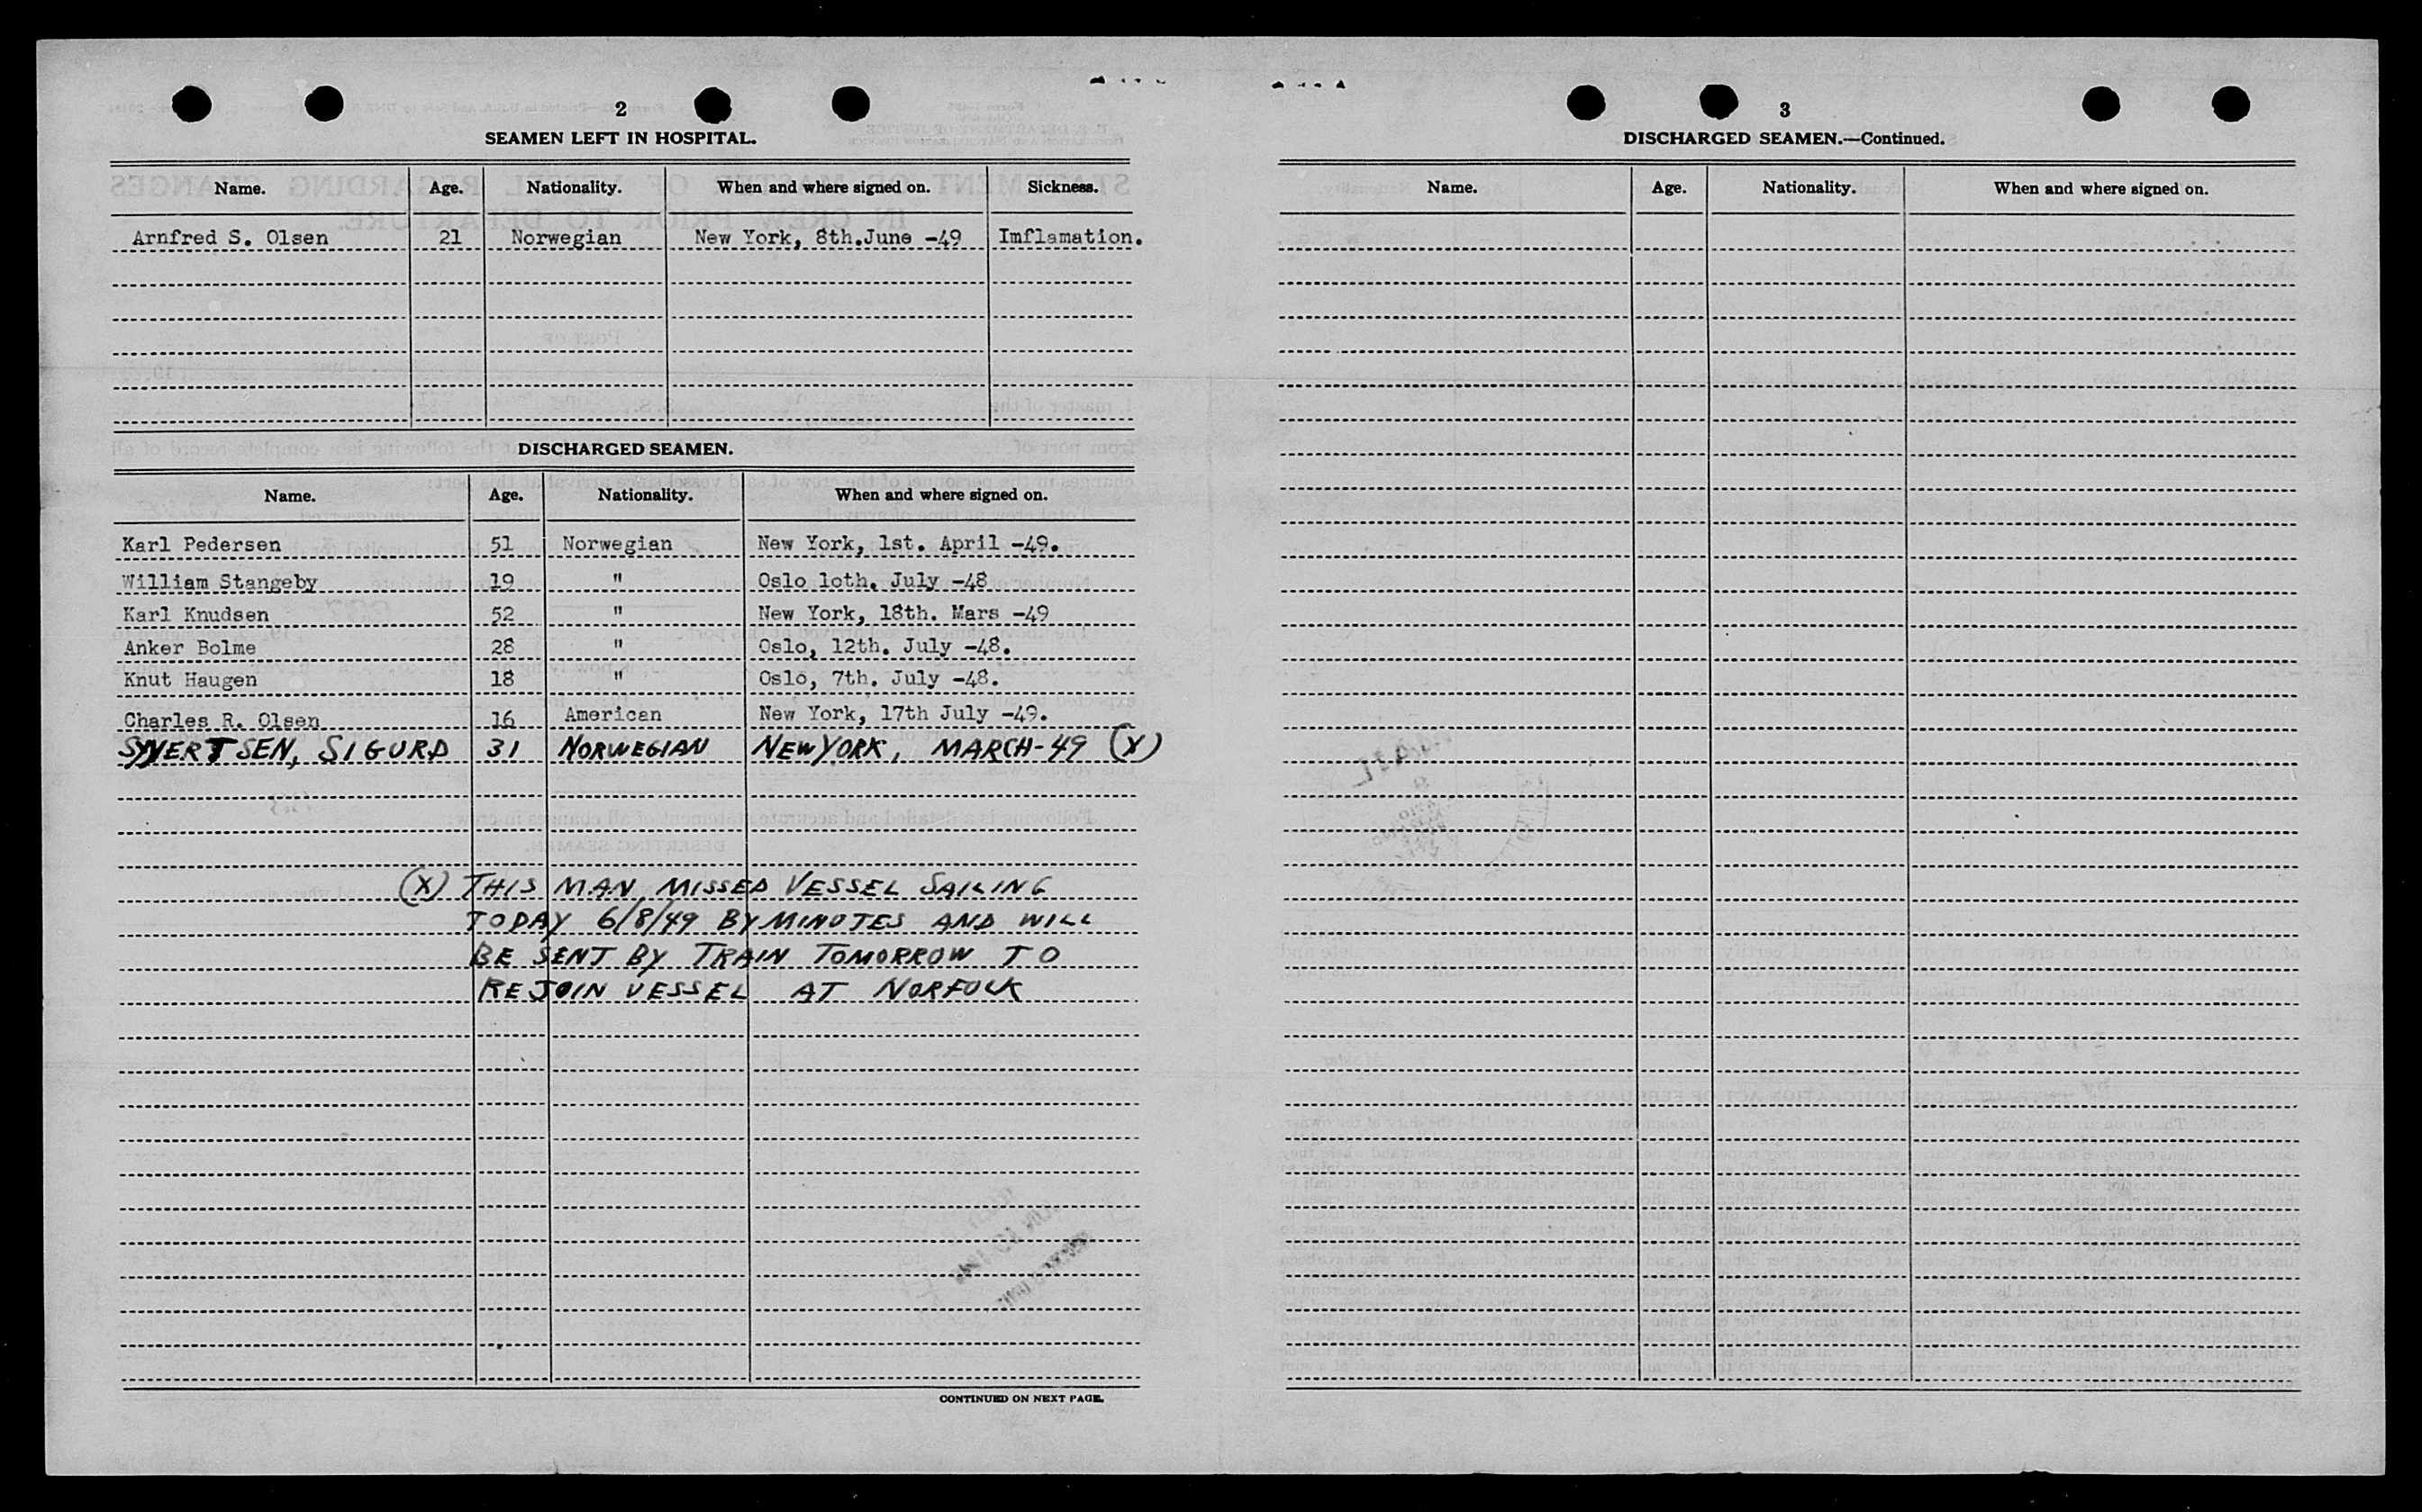 2
SEAMEN LEFT IN HOSPITAL.
Name. Age. Nationality. When and where signed on. Sickness.
Arnfred S. Olsen 21 Norwegian New York, 8th.June -49 Imflamation.
DISCHARGED SEAMEN.
Name. Age. Nationality. When and where signed on.
Karl Pedersen 51 Norwegian New York, 1st. April -49.
William Stangeby 19 " Oslo loth. July -48
Karl Knudsen 52 " New York, 18th. Mars -49
Anker Bolme 28 " Oslo, 12th. July -48.
Knut Haugen 18 " Oslo, 7th. July -48.
Charles R. Olsen 16 American New York, 17th July -49.
SYVERTSEN, SIGURD 31 NORWEGIAN NEW YORK, MARCH-49 (X)
(X) THIS MAN MISSED VESSEL SAILING
TODAY 6/8/49 BY MINUTES AND WILL
BE SENT BY TRAIN TOMORROW TO
REJOIN VESSEL AT NORFOLK
CONTINUED ON NEXT PAGE.
3
DISCHARGED SEAMEN.—Continued.
Name. Age. Nationality. When and where signed on.